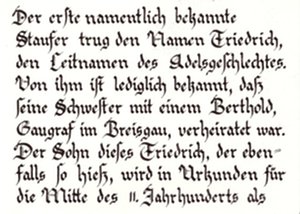 Der erste namentlich bekannte
Staufer trug den Namen Friedrich,
den Leitnamen des Adelsgeschlechtes.
Von ihm ist lediglich bekannt, daß
seine Schwester mit einem Berthold,
Gaugraf im Breisgau, verheiratet war.
Der Sohn dieses Friedrich, der eben-
falls so hieß, wird in Urkunden für
die Mitte des 11. Jahrhunderts als